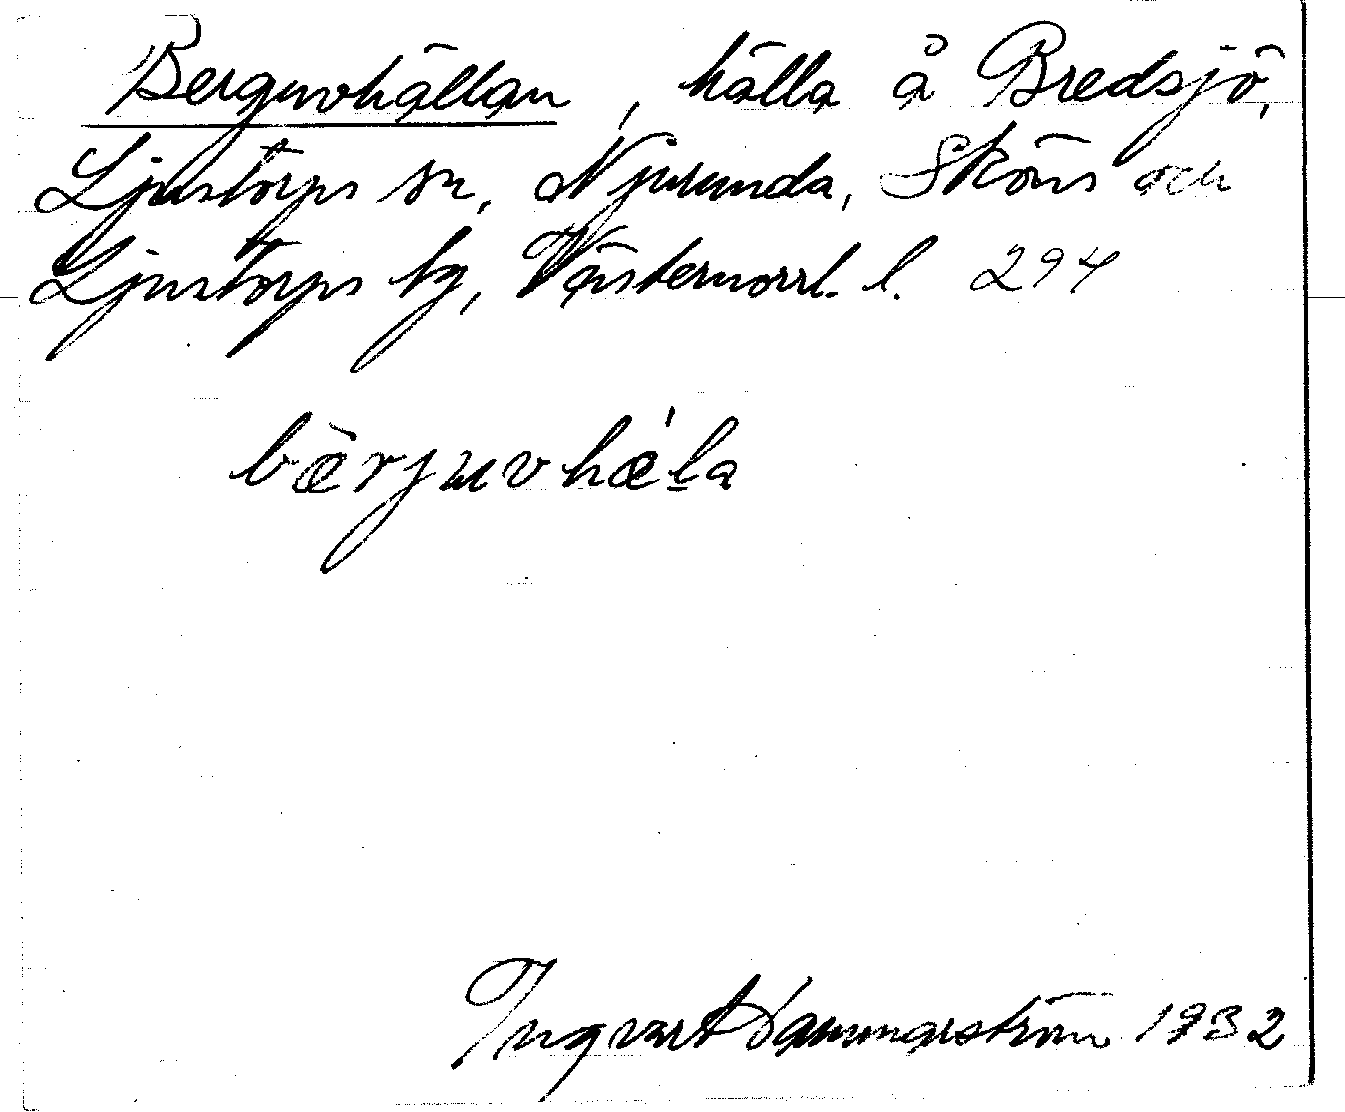 Berguvhällan, hälla å Bredsjö,
Ljustorps sn, Njurunda, Sköns och
Ljustorps tg, Västernorrl. l. 294
bærjuvhæla
Ingvart Hammarström 1932